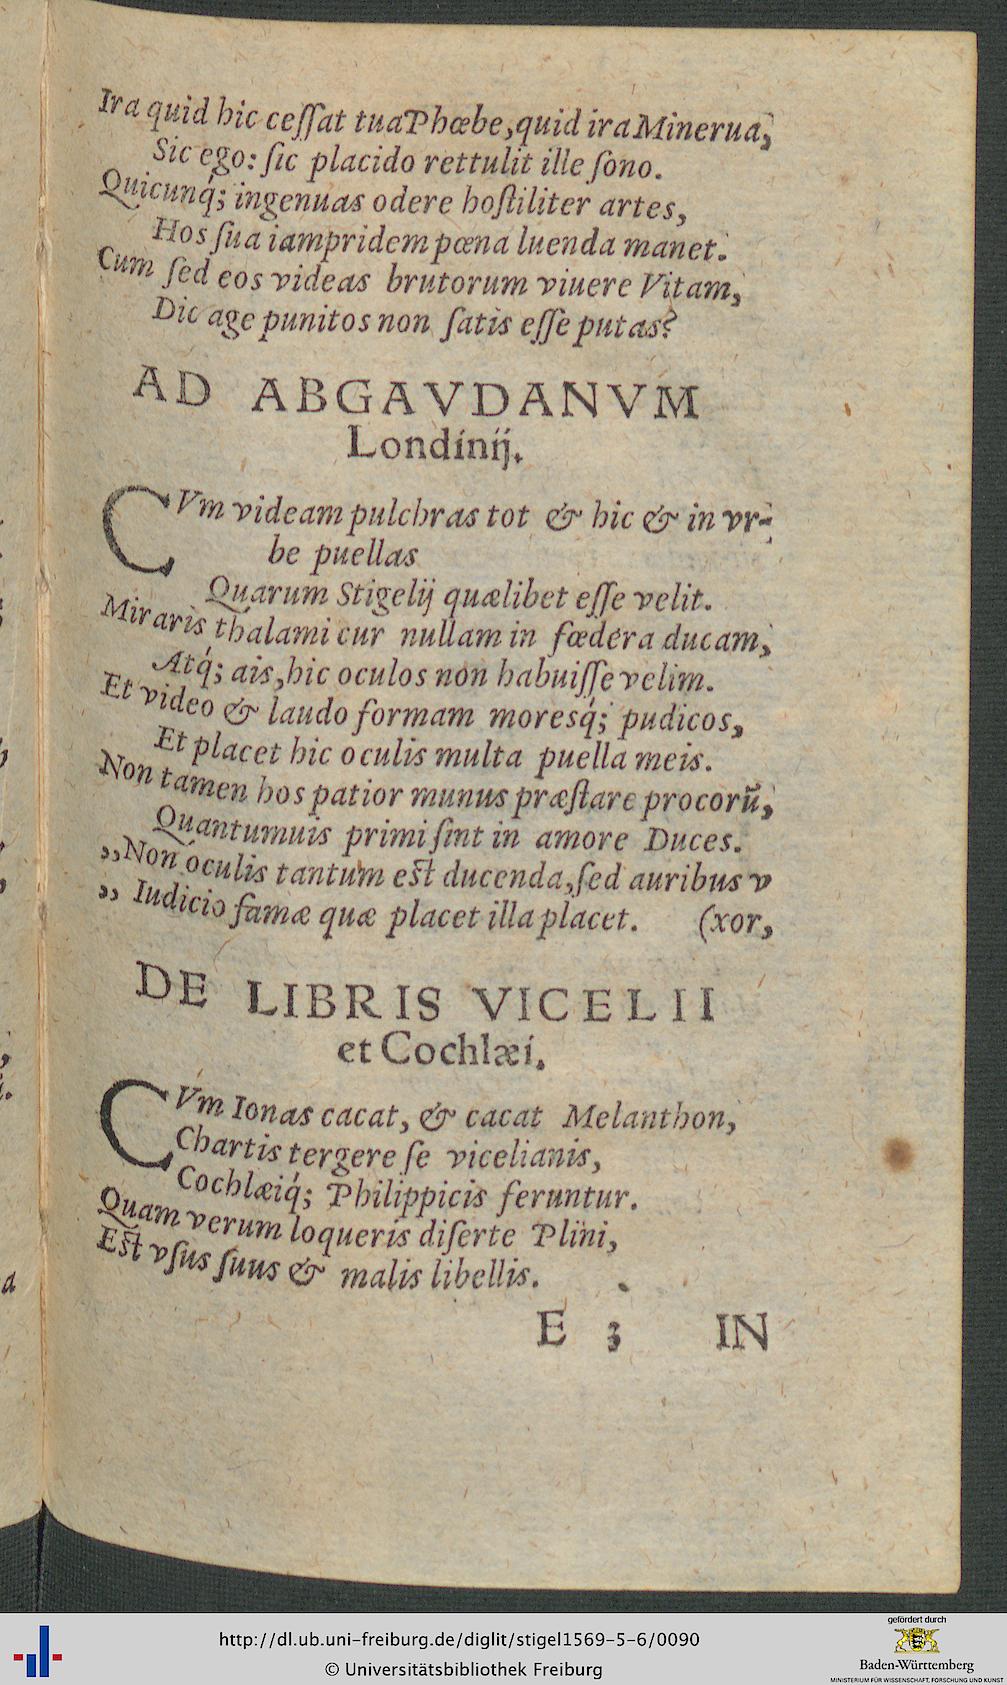 Ira quid hic ceſſat tua Phœbe, quid ira Minerua,
Sic ego: ſic placido rettulit ille ſono.
Quicunq́; ingenuas odere hoſtiliter artes,
Hos ſua iampridem pœna luenda manet.
Cum ſed eos videas brutorum viuere Vitam,
Dic age punitos non ſatis eſſe putas?
AD ABGAVDANVM
Londinij.
CVm videam pulchras tot & hic & in vr-
be puellas
Quarum Stigelij quælibet eſſe velit.
Miraris thalami cur nullam in fœdera ducam,
Atq́; ais, hic oculos non habuiſſe velim.
Et video & laudo formam moresq́; pudicos,
Et placet hic oculis multa puella meis.
Non tamen hos patior munus præſtare procorũ,
Quantumuis primi ſint in amore Duces.
„Non oculis tantum eſt ducenda, ſed auribus v
„ Iudicio famæ quæ placet illa placet. (xor,
DE LIBRIS VICELII
et Cochlæi.
CVm Ionas cacat, & cacat Melanthon,
Chartis tergere ſe vicelianis,
Cochlæiq́; Philippicis feruntur.
Quam verum loqueris diſerte Plini,
Eſt vſus ſuus & malis libellis.
E 3 IN
http://dl.ub.uni-freiburg.de/diglit/stigel1569-5-6/0090
© Universitätsbibliothek Freiburg
gefördert durch
Baden-Württemberg
MINISTERIUM FÜR WISSENSCHAFT, FORSCHUNG UND KUNST